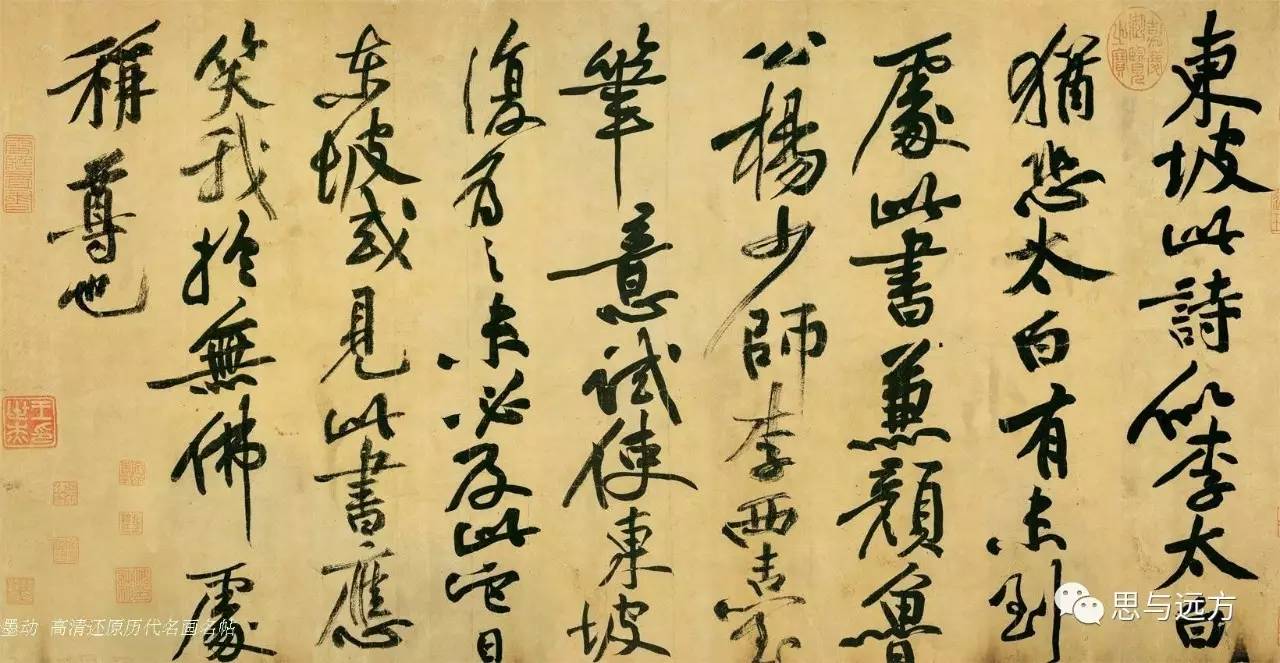 東坡此詩似李太白
猶恐太白有未到
處此書兼顏魯
公楊少師李西臺
筆意試使東坡
復爲之未必及此它日
东坡或見此書應
笑我於無佛處
稱尊也
思与远方
墨动 高清还原历代名画名帖